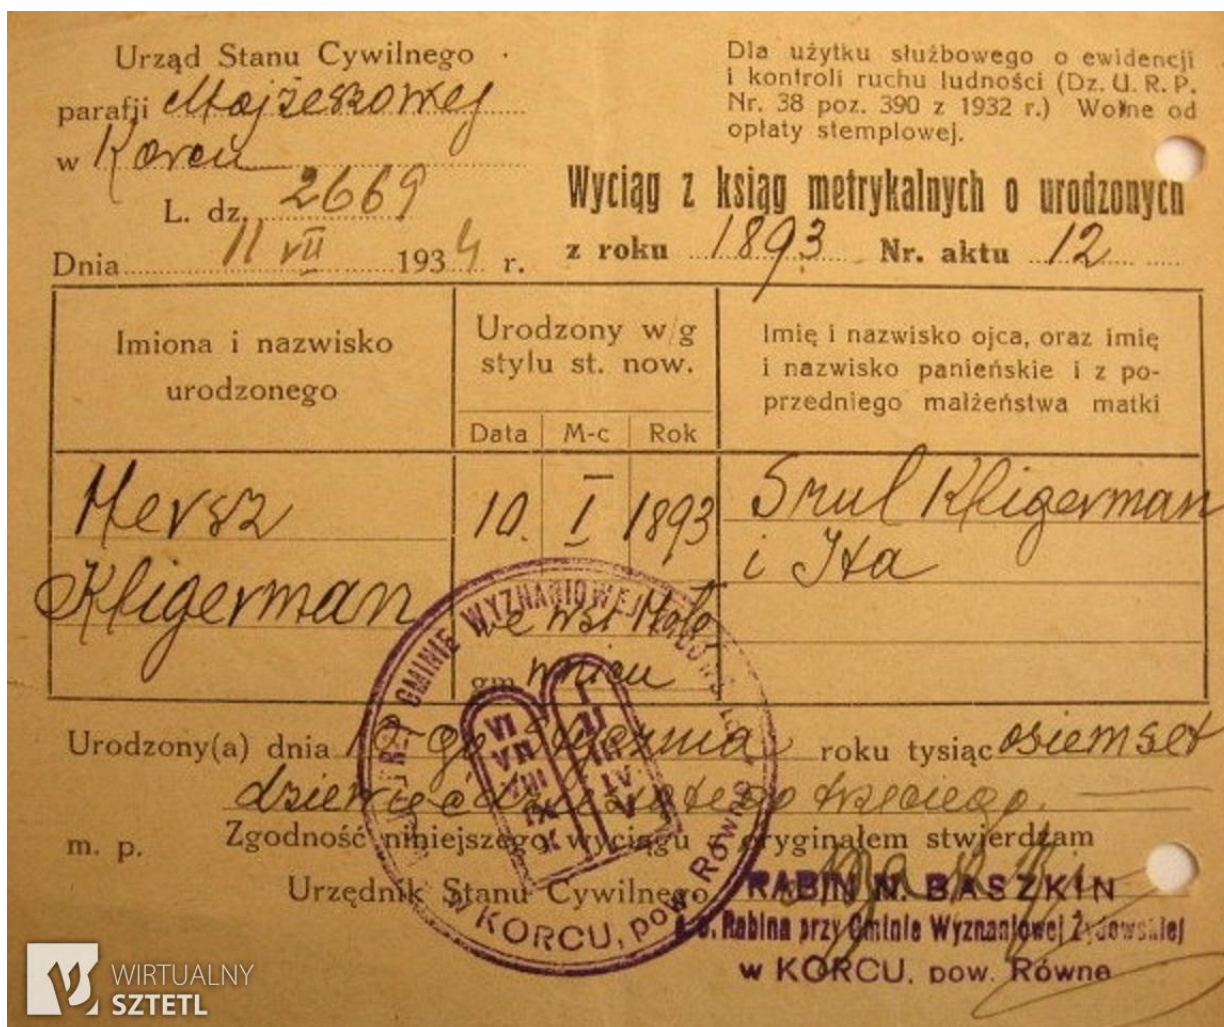 Urząd Stanu Cywilnego
parafji Mojżeszowej
w Korcu
L. dz. 2669
Dnia 11 VII 1934 r.
Dla użytku służbowego o ewidencji
i kontroli ruchu ludności (Dz. U. R. P.
Nr. 38 poz. 390 z 1932 r.) Wolne od
opłaty stemplowej.
Wyciąg z ksiąg metrykalnych o urodzonych
z roku 1893 Nr. aktu 12
Imiona i nazwisko
urodzonego
Urodzony w/g
stylu st. now.
Data M-c Rok
Imię i nazwisko ojca, oraz imię
i nazwisko panieńskie i z po-
przedniego małżeństwa matki
Hersz
Kligerman
10. I 1893
we wsi
gm
Srul Kligerman
i Ita
Urodzony(a) dnia 10-go stycznia roku tysiąc osiemset
dziewięćdziesiątego trzeciego.
m. p.
Zgodność niniejszego wyciągu z oryginałem stwierdzam
Urzędnik Stanu Cywilnego
GMINIE WYZNANIOWEJ
w KORCU, pow. Równe
VI I
VII II
VIII III
IX IV
X V
RABIN N. BASZKIN
Rabina przy Gminie Wyznaniowej Żydowskiej
w KORCU, pow. Równe
WIRTUALNY
SZTETL